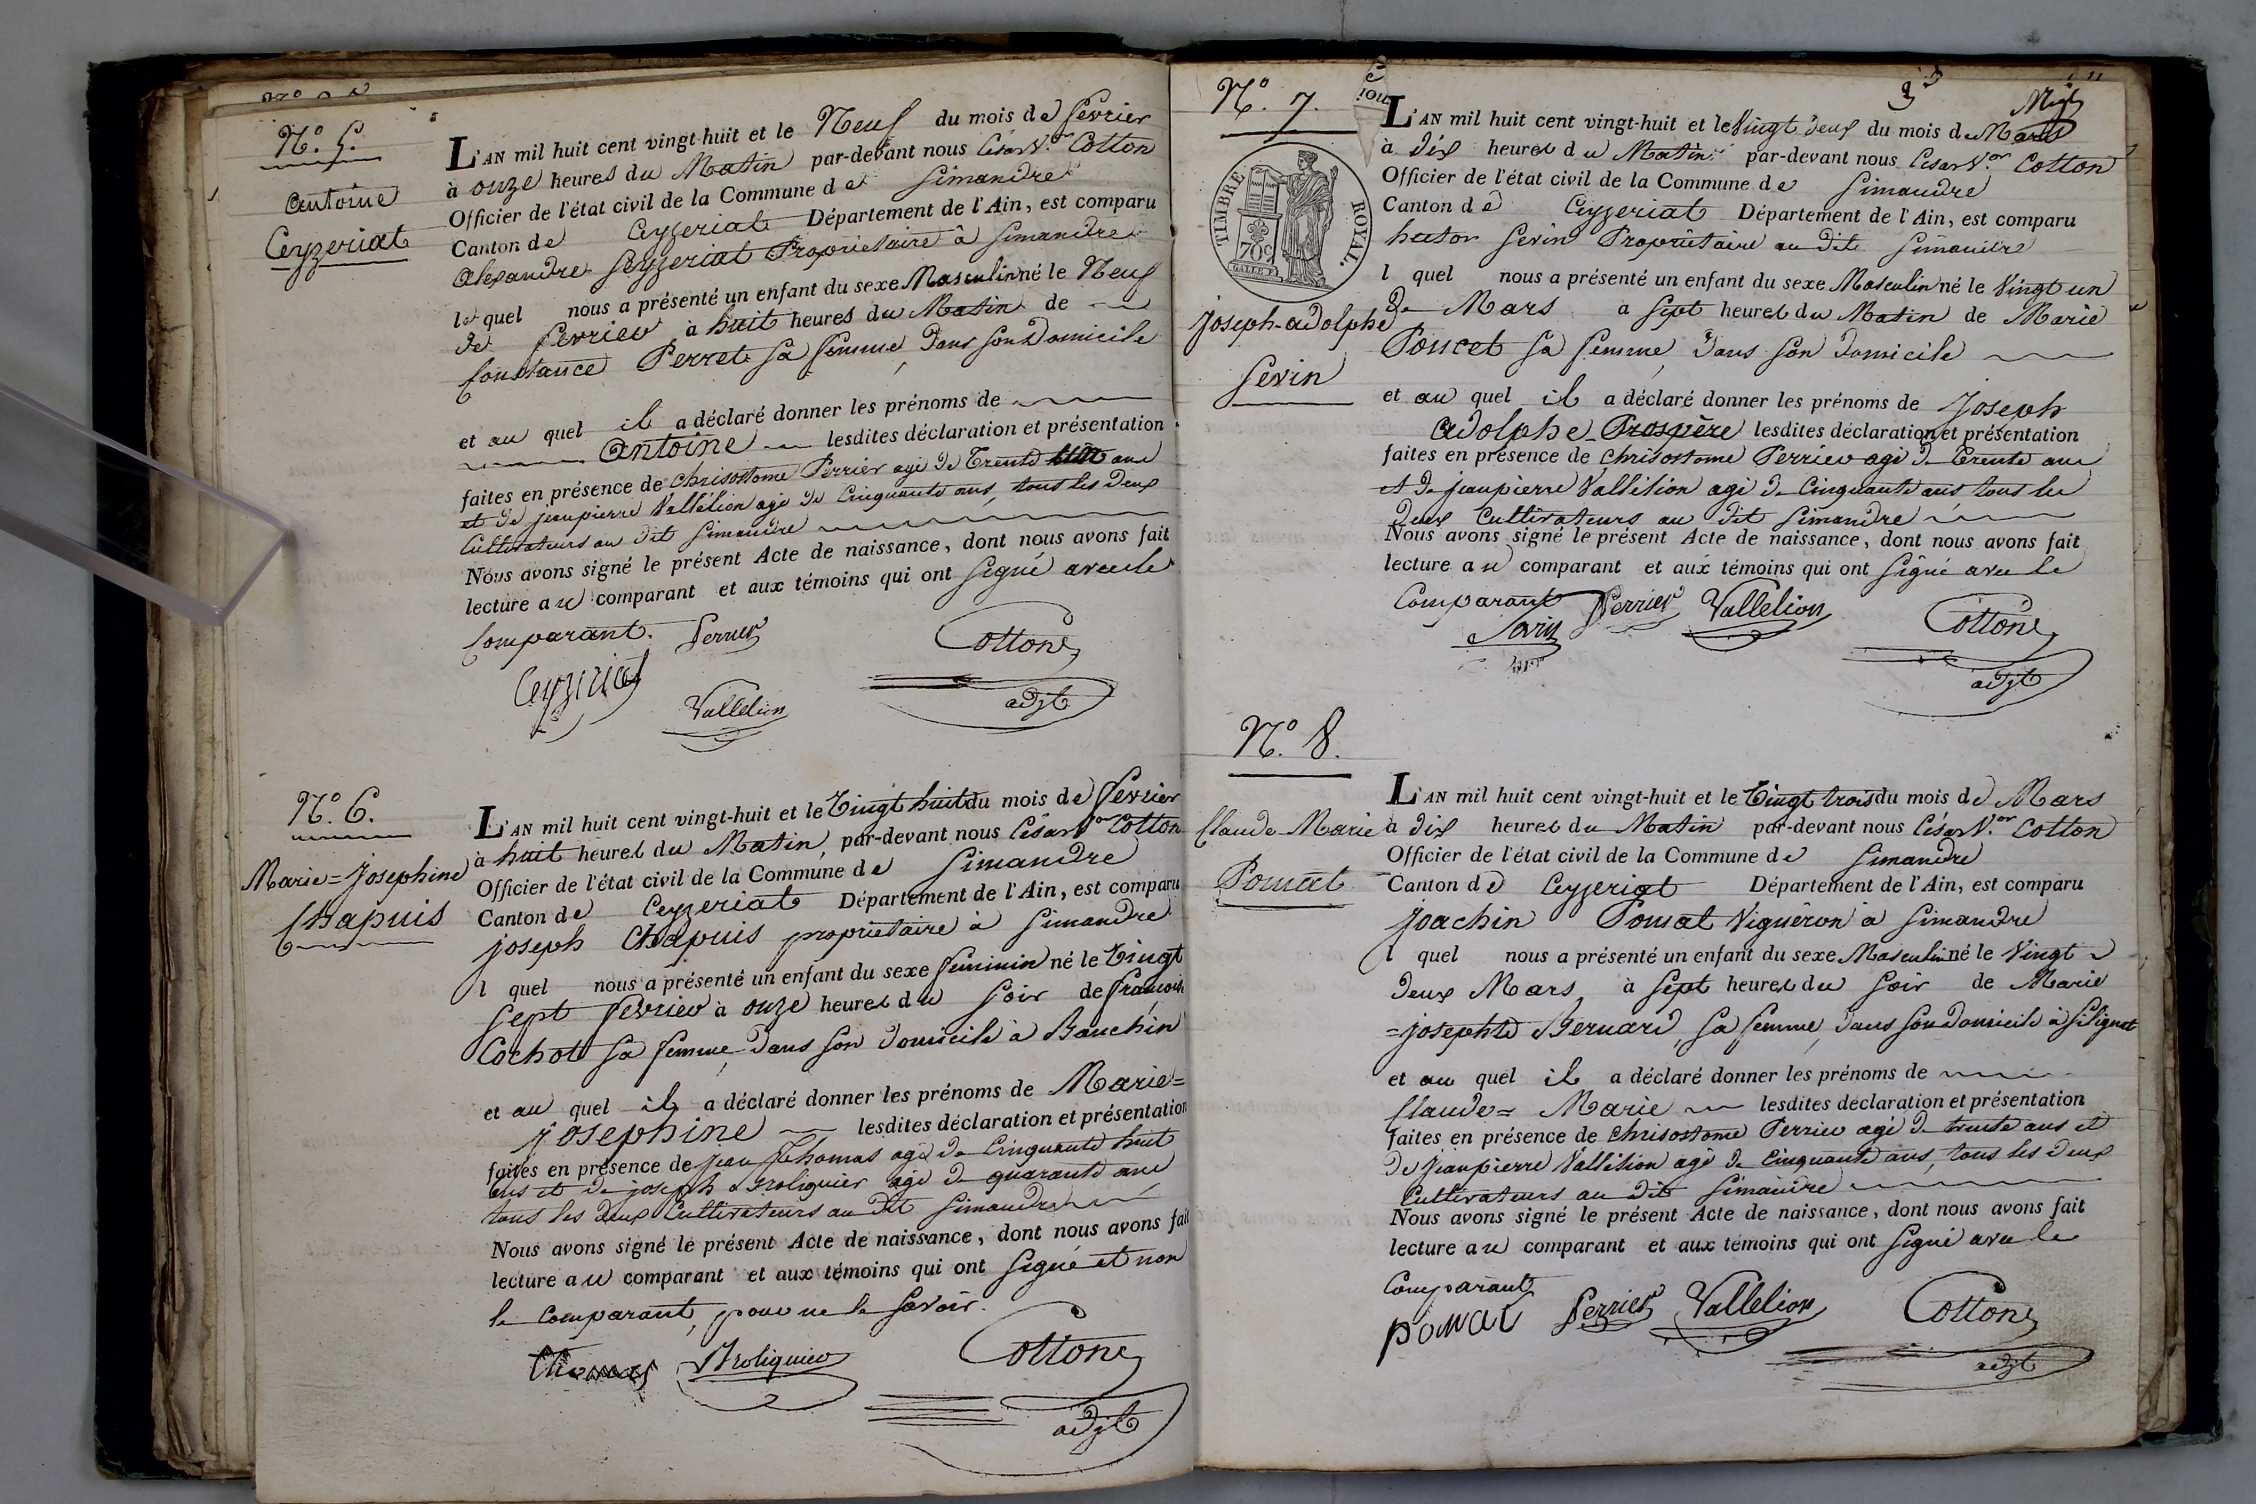 N.° 5.
Antoine
Ceyzeriat
L'AN mil huit cent vingt-huit et le Neuf du mois de fevrier
à onze heures du Matin par-devant nous César V.or Cotton
Officier de l'état civil de la Commune de Simandre
Canton de Ceyzeriat Département de l'Ain, est comparu
alexandre Ceyzeriat Propriétaire à Simandre
le quel nous a présenté un enfant du sexe Masculin né le Neuf
de fevrier à huit heures du Matin de
Constance Perret sa femme, dans son Domicile
et au quel il a déclaré donner les prénoms de
Antoine lesdites déclaration et présentation
faites en présence de Chrisostome Perrier agé de Trente ans
et de jeanpierre Vallélion agé de Cinquante ans, tous les deux
Cultivateurs au dit Simandre
Nous avons signé le présent Acte de naissance, dont nous avons fait
lecture au comparant et aux témoins qui ont signé avec le
Comparant. Perrier Cotton
Ceyzeriat
Vallelion adjt
N.° 6.
Marie=Josephine
Chapuis
L'AN mil huit cent vingt-huit et le Vingt huit du mois de fevrier
à huit heures du Matin, par-devant nous César V.or Cotton
Officier de l'état civil de la Commune de Simandre
Canton de Ceyzeriat Département de l'Ain, est comparu
joseph Chapuis propriétaire à Simandre
l quel nous a présenté un enfant du sexe feminin né le Vingt
sept fevrier à onze heures du soir de françoise
Cochot sa femme, dans son domicile à Banchin
et au quel il a déclaré donner les prénoms de Marie=
josephine lesdites déclaration et présentation
faites en présence de jean Thomas agé de Cinquante huit
ans et de joseph Broliquier agé de quarante ans
tous les deux Cultivateurs au dit Simandre
Nous avons signé le présent Acte de naissance, dont nous avons fait
lecture au comparant et aux témoins qui ont signé et non
le Comparant, pour ne le savoir.
Thomas Broliquier Cotton
adjt
3
N.° 7.
TIMBRE ROYAL.
70c
joseph-adolphe
Sevin
L'AN mil huit cent vingt-huit et le Vingt deux du mois de Mars
à dix heures du Matin par-devant nous César V.or Cotton
Officier de l'état civil de la Commune de Simandre
Canton de Ceyzeriat Département de l'Ain, est comparu
hector Sevin Propriétaire au dit Simandre
l quel nous a présenté un enfant du sexe Masculin né le Vingt un
de Mars a sept heures du Matin de Marie
Poncet sa femme, dans son domicile
et au quel il a déclaré donner les prénoms de Joseph
Adolphe Prospère lesdites déclaration et présentation
faites en présence de Chrisostome Perrier agé de Trente ans
et de jeanpierre Vallélion agé de Cinquante ans tous les
deux Cultivateurs au dit Simandre
Nous avons signé le présent Acte de naissance, dont nous avons fait
lecture au comparant et aux témoins qui ont signé avec le
Comparant Perrier Vallelion Cotton
Sevin
adjt
N.° 8.
Claude Marie
Pomat
L'AN mil huit cent vingt-huit et le Vingt trois du mois de Mars
à dix heures du Matin par-devant nous César V.or Cotton
Officier de l'état civil de la Commune de Simandre
Canton de Ceyzeriat Département de l'Ain, est comparu
joachin Pomat Vigneron à Simandre
l quel nous a présenté un enfant du sexe Masculin né le Vingt
deux Mars, à sept heures du soir de Marie
=josephte Bernard, sa femme, dans son domicile à Silignat
et au quel il a déclaré donner les prénoms de
Claude= Marie lesdites déclaration et présentation
faites en présence de Chrisostome Perrier agé de trente ans et
de jeanpierre Vallélion agé de Cinquante ans, tous les deux
Cultivateurs au dit Simandre
Nous avons signé le présent Acte de naissance, dont nous avons fait
lecture au comparant et aux témoins qui ont signé avec le
Comparant
pomat Perrier Vallelion Cotton
adjt